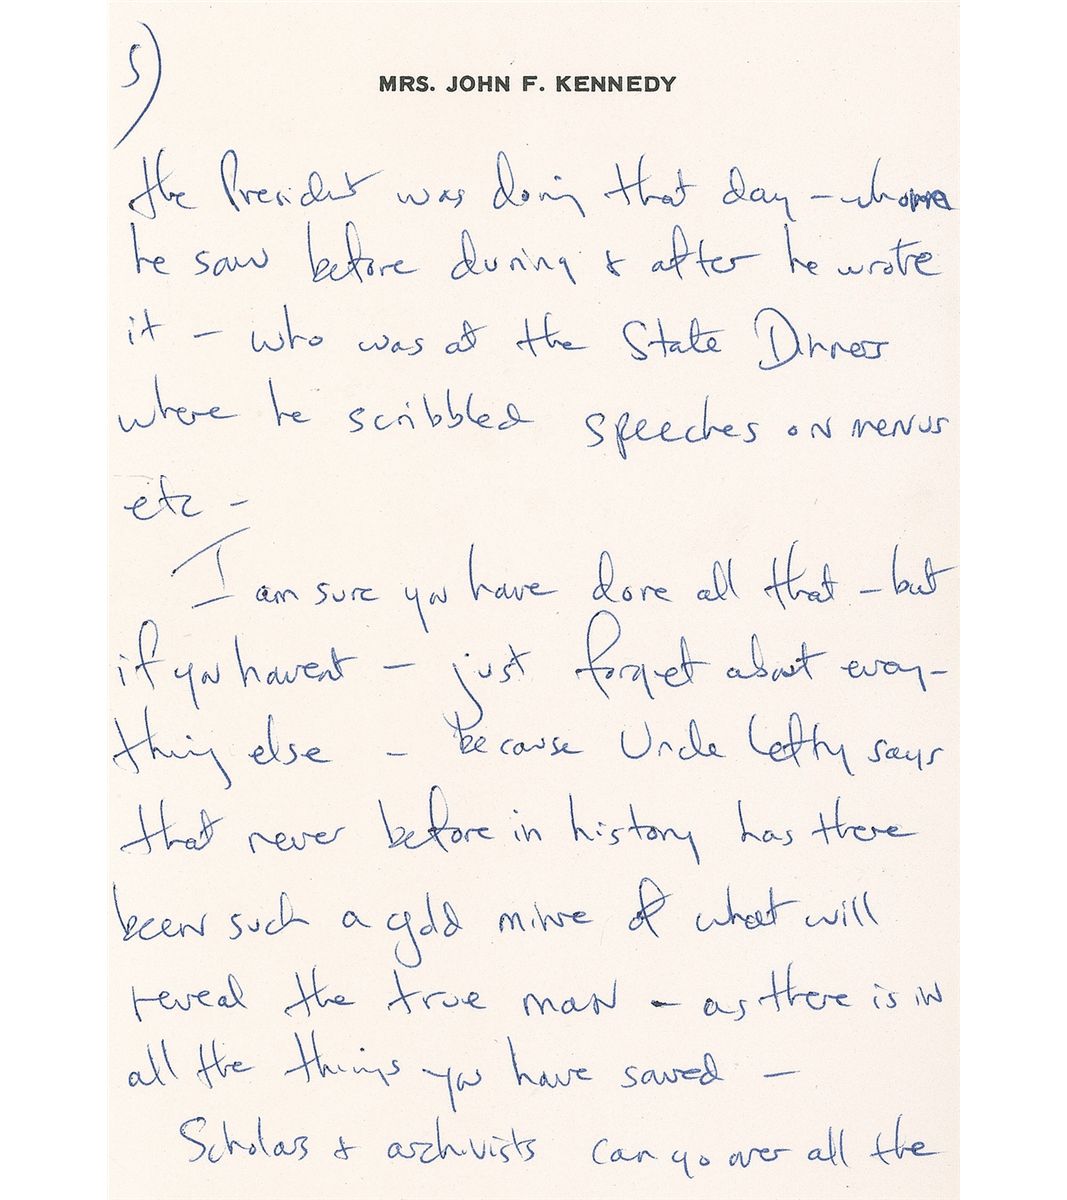 5)
MRS. JOHN F. KENNEDY
the President was doing that day – whom
he saw before during & after he wrote
it – who was at the State Dinner
where he scribbled speeches on menus
etc –
I am sure you have done all that – but
if you havent – just forget about every-
thing else – because Uncle Lefty says
that never before in history has there
been such a gold mine of what will
reveal the true man – as there is in
all the things you have saved –
Scholars & archivists can go over all the